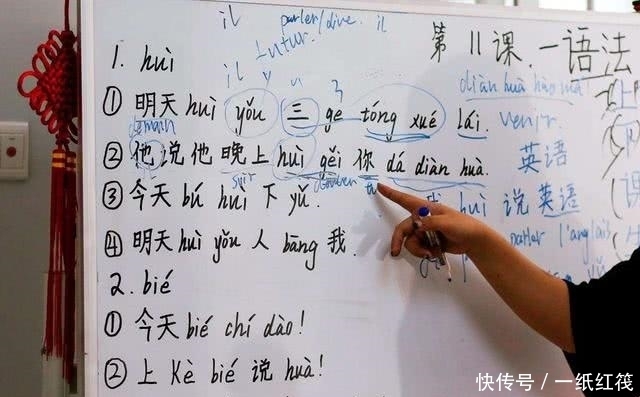 il parler/dire. il
futur.
第11课.一语法
1. huì
il y
diàn huà hào mǎ
① 明天huì yǒu 三 ge tóng xué lái. venir.
demain
② 他说他晚上huì gěi 你 dá diàn huà.
英语
soir
③ 今天 bú huì 下 yǔ.
huì 说英语
parler l'anglais
④ 明天huì yǒu 人 bāng 我.
2. bié
① 今天 bié chí dào!
② 上 Kè bié 说 huà!
快传号／一纸红筏